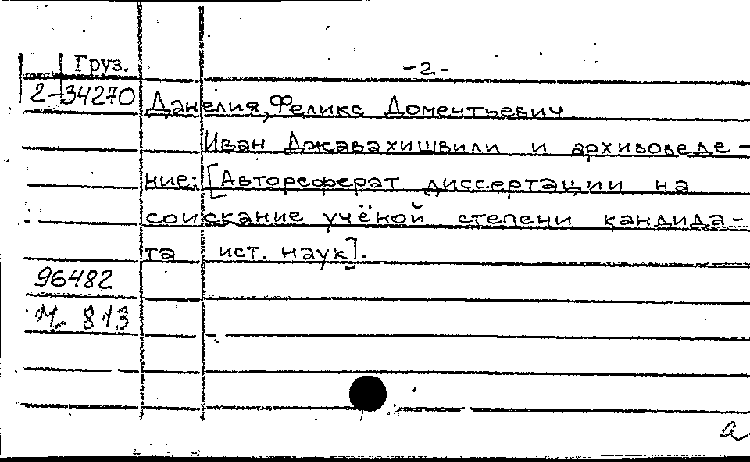 Груз. -2-
2-34270 Данелия, Феликс Доментьевич
Иван Джавахишвили и архивоведе-
ние: [Автореферат диссертации на
соискание учёной степени кандида-
та ист. наук].
96482
813
a